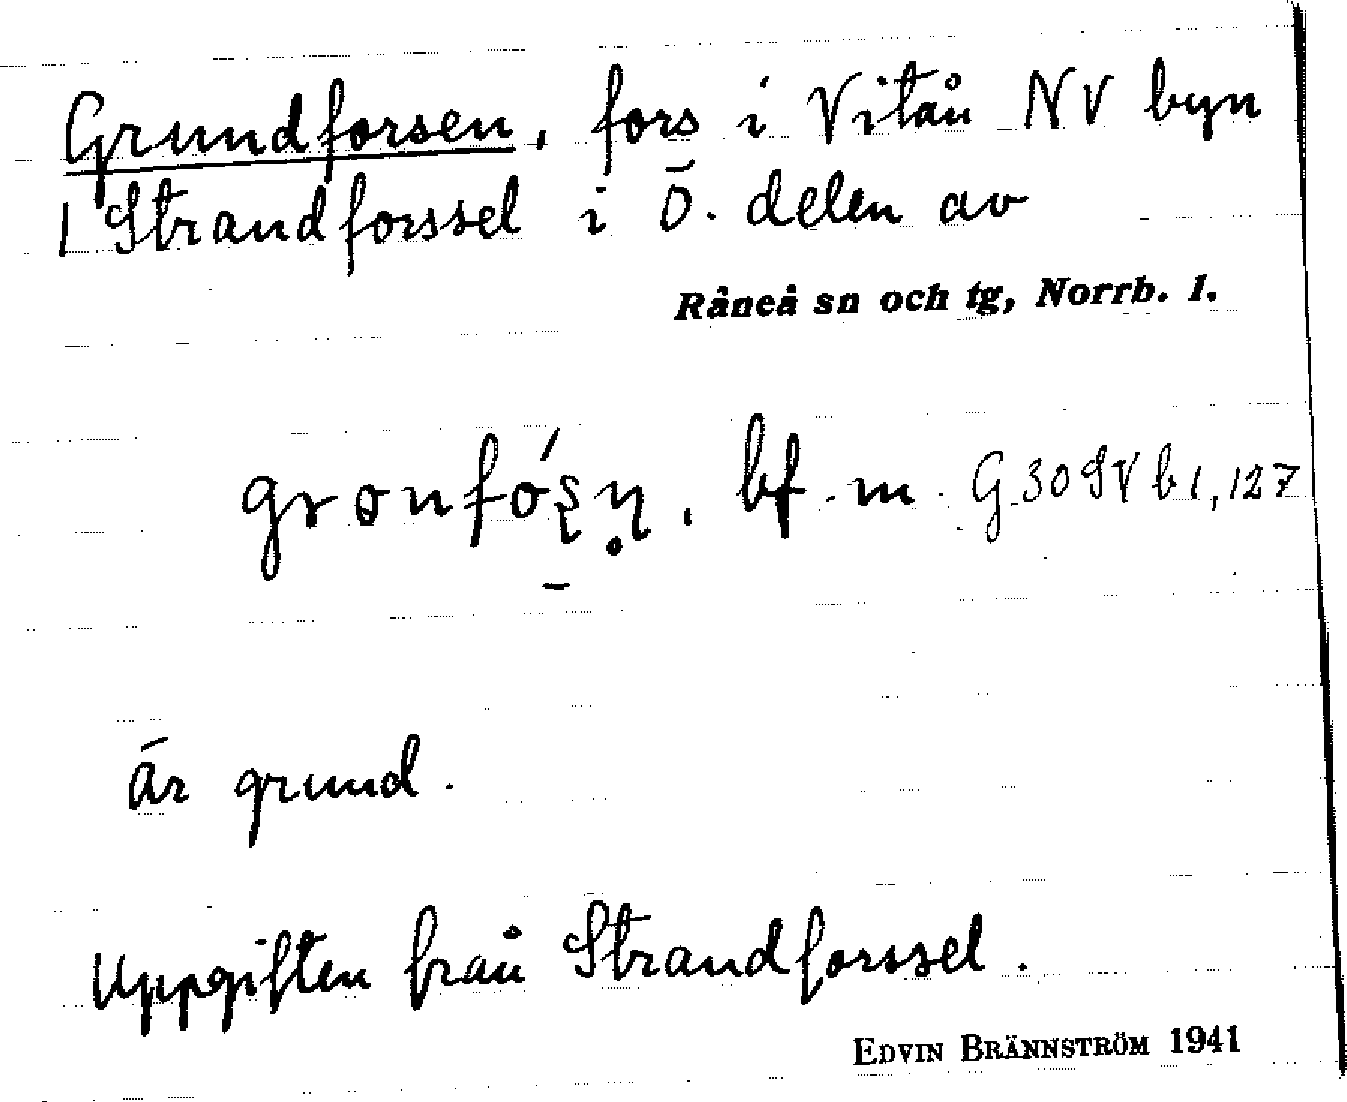 Grundforsen, fors i Vitån NV byn
/ Strandforssel i Ö. delen av
Råneå sn och tg, Norrb. l.
bf. m. G 30 SV b 1, 127
är grund.
Uppgiften från Strandforssel.
EDVIN BRÄNNSTRÖM 1941